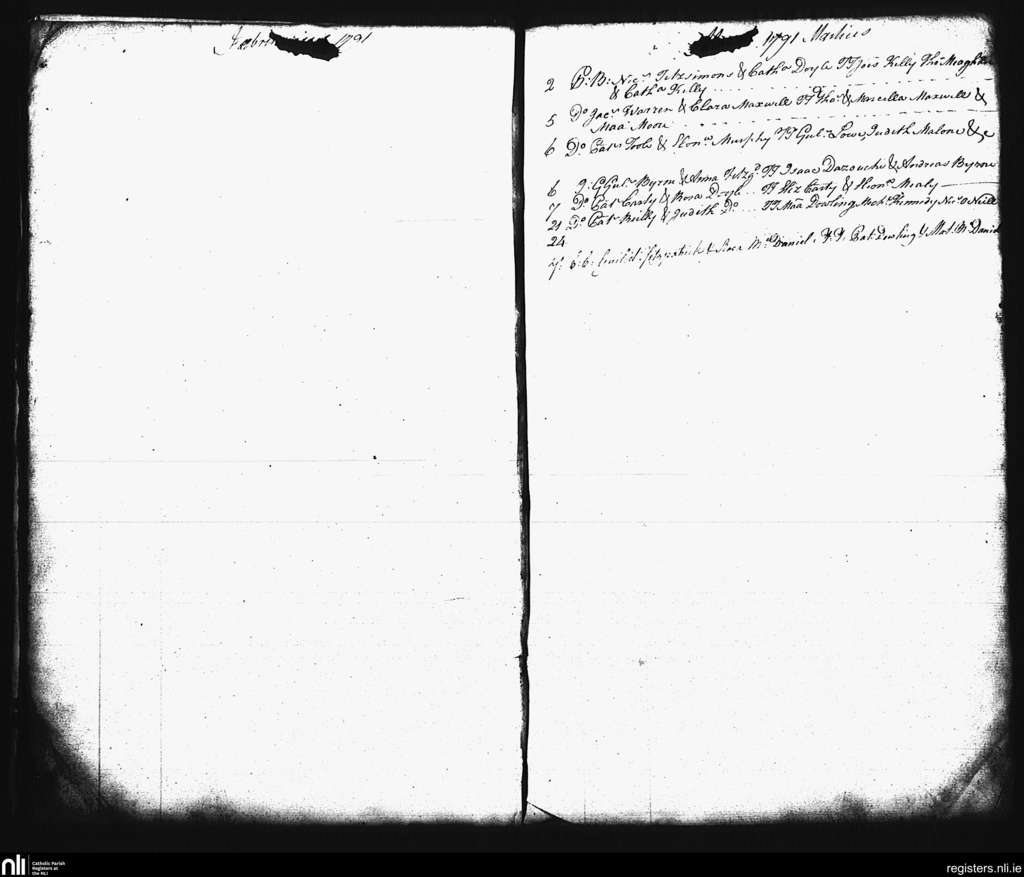 1791
1791 Martius
2 B:B: Nics Fitzsimons & Catha Doyle TT Jois Kelly Thos Meagher
& Catha Kelly
5 Do Jacs Warren & Clara Maxwell TT Thos & Marcella Maxwell &
Maa Moore
6 Do Pats Toole & Honra Murphy TT Gul: Lowe, Judith Malone &c
6 Gul: Byron & Anna Fitzgd TT Isaac & Andreas Byrone
7 Do Pats Carty & Rosa Doyle TT Carty & Honra Mealy
21 Do Pats Reilly & Judith Do TT Maa Dowling Mich: Kennedy Nics O Neill
24
B:B: Fitzpatrick & McDaniel, T.T. Pat: Dowling & Mat: McDaniel
nli
Catholic Parish
Registers at
the NLI
registers.nli.ie